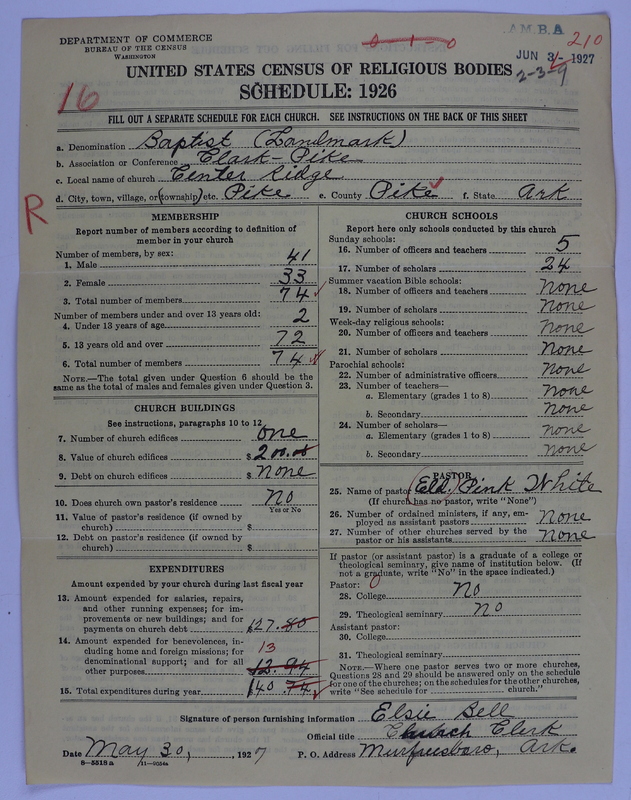 DEPARTMENT OF COMMERCE
BUREAU OF THE CENSUS
WASHINGTON
0-1-0
A.M.B.A
210
JUN 3 1927
2-3-9
UNITED STATES CENSUS OF RELIGIOUS BODIES
SCHEDULE: 1926
16
FILL OUT A SEPARATE SCHEDULE FOR EACH CHURCH. SEE INSTRUCTIONS ON THE BACK OF THIS SHEET
a. Denomination Baptist (Landmark)
b. Association or Conference Clark-Pike
c. Local name of church Center Ridge
d. City, town, village, or (township) etc. Pike e. County Pike f. State Ark
R
MEMBERSHIP
Report number of members according to definition of
member in your church
Number of members, by sex:
1. Male 41
2. Female 33
3. Total number of members 74
Number of members under and over 13 years old:
4. Under 13 years of age 2
5. 13 years old and over 72
6. Total number of members 74
NOTE.—The total given under Question 6 should be the
same as the total of males and females given under Question 3.
CHURCH BUILDINGS
See instructions, paragraphs 10 to 12
7. Number of church edifices one
8. Value of church edifices $ 200.00
9. Debt on church edifices $ None
10. Does church own pastor's residence No
Yes or No
11. Value of pastor's residence (if owned by
church) $
12. Debt on pastor's residence (if owned by
church) $
EXPENDITURES
Amount expended by your church during last fiscal year
13. Amount expended for salaries, repairs,
and other running expenses; for im-
provements or new buildings; and for
payments on church debt $127.80
14. Amount expended for benevolences, in-
cluding home and foreign missions; for
denominational support; and for all
other purposes 13 12.94
15. Total expenditures during year 140.74
CHURCH SCHOOLS
Report here only schools conducted by this church
Sunday schools:
16. Number of officers and teachers 5
17. Number of scholars 24
Summer vacation Bible schools:
18. Number of officers and teachers None
19. Number of scholars None
Week-day religious schools:
20. Number of officers and teachers None
21. Number of scholars None
Parochial schools:
22. Number of administrative officers None
23. Number of teachers—
a. Elementary (grades 1 to 8) None
b. Secondary None
24. Number of scholars—
a. Elementary (grades 1 to 8) None
b. Secondary None
PASTOR
25. Name of pastor (Eld.) Pink White
(If church has no pastor, write "None")
26. Number of ordained ministers, if any, em-
ployed as assistant pastors None
27. Number of other churches served by the
pastor or his assistants None
If pastor (or assistant pastor) is a graduate of a college or
theological seminary, give name of institution below. (If
not a graduate, write "No" in the space indicated.)
Pastor: 0
28. College No
29. Theological seminary No
Assistant pastor:
30. College
31. Theological seminary
NOTE.—Where one pastor serves two or more churches,
Questions 28 and 29 should be answered only on the schedule
for one of the churches; on the schedules for the other churches,
write "See schedule for church."
Signature of person furnishing information Elsie Bell
Official title Church Clerk
Date May 30, 1927 P. O. Address Murfreesboro, Ark.
8-5518a 11-9054a